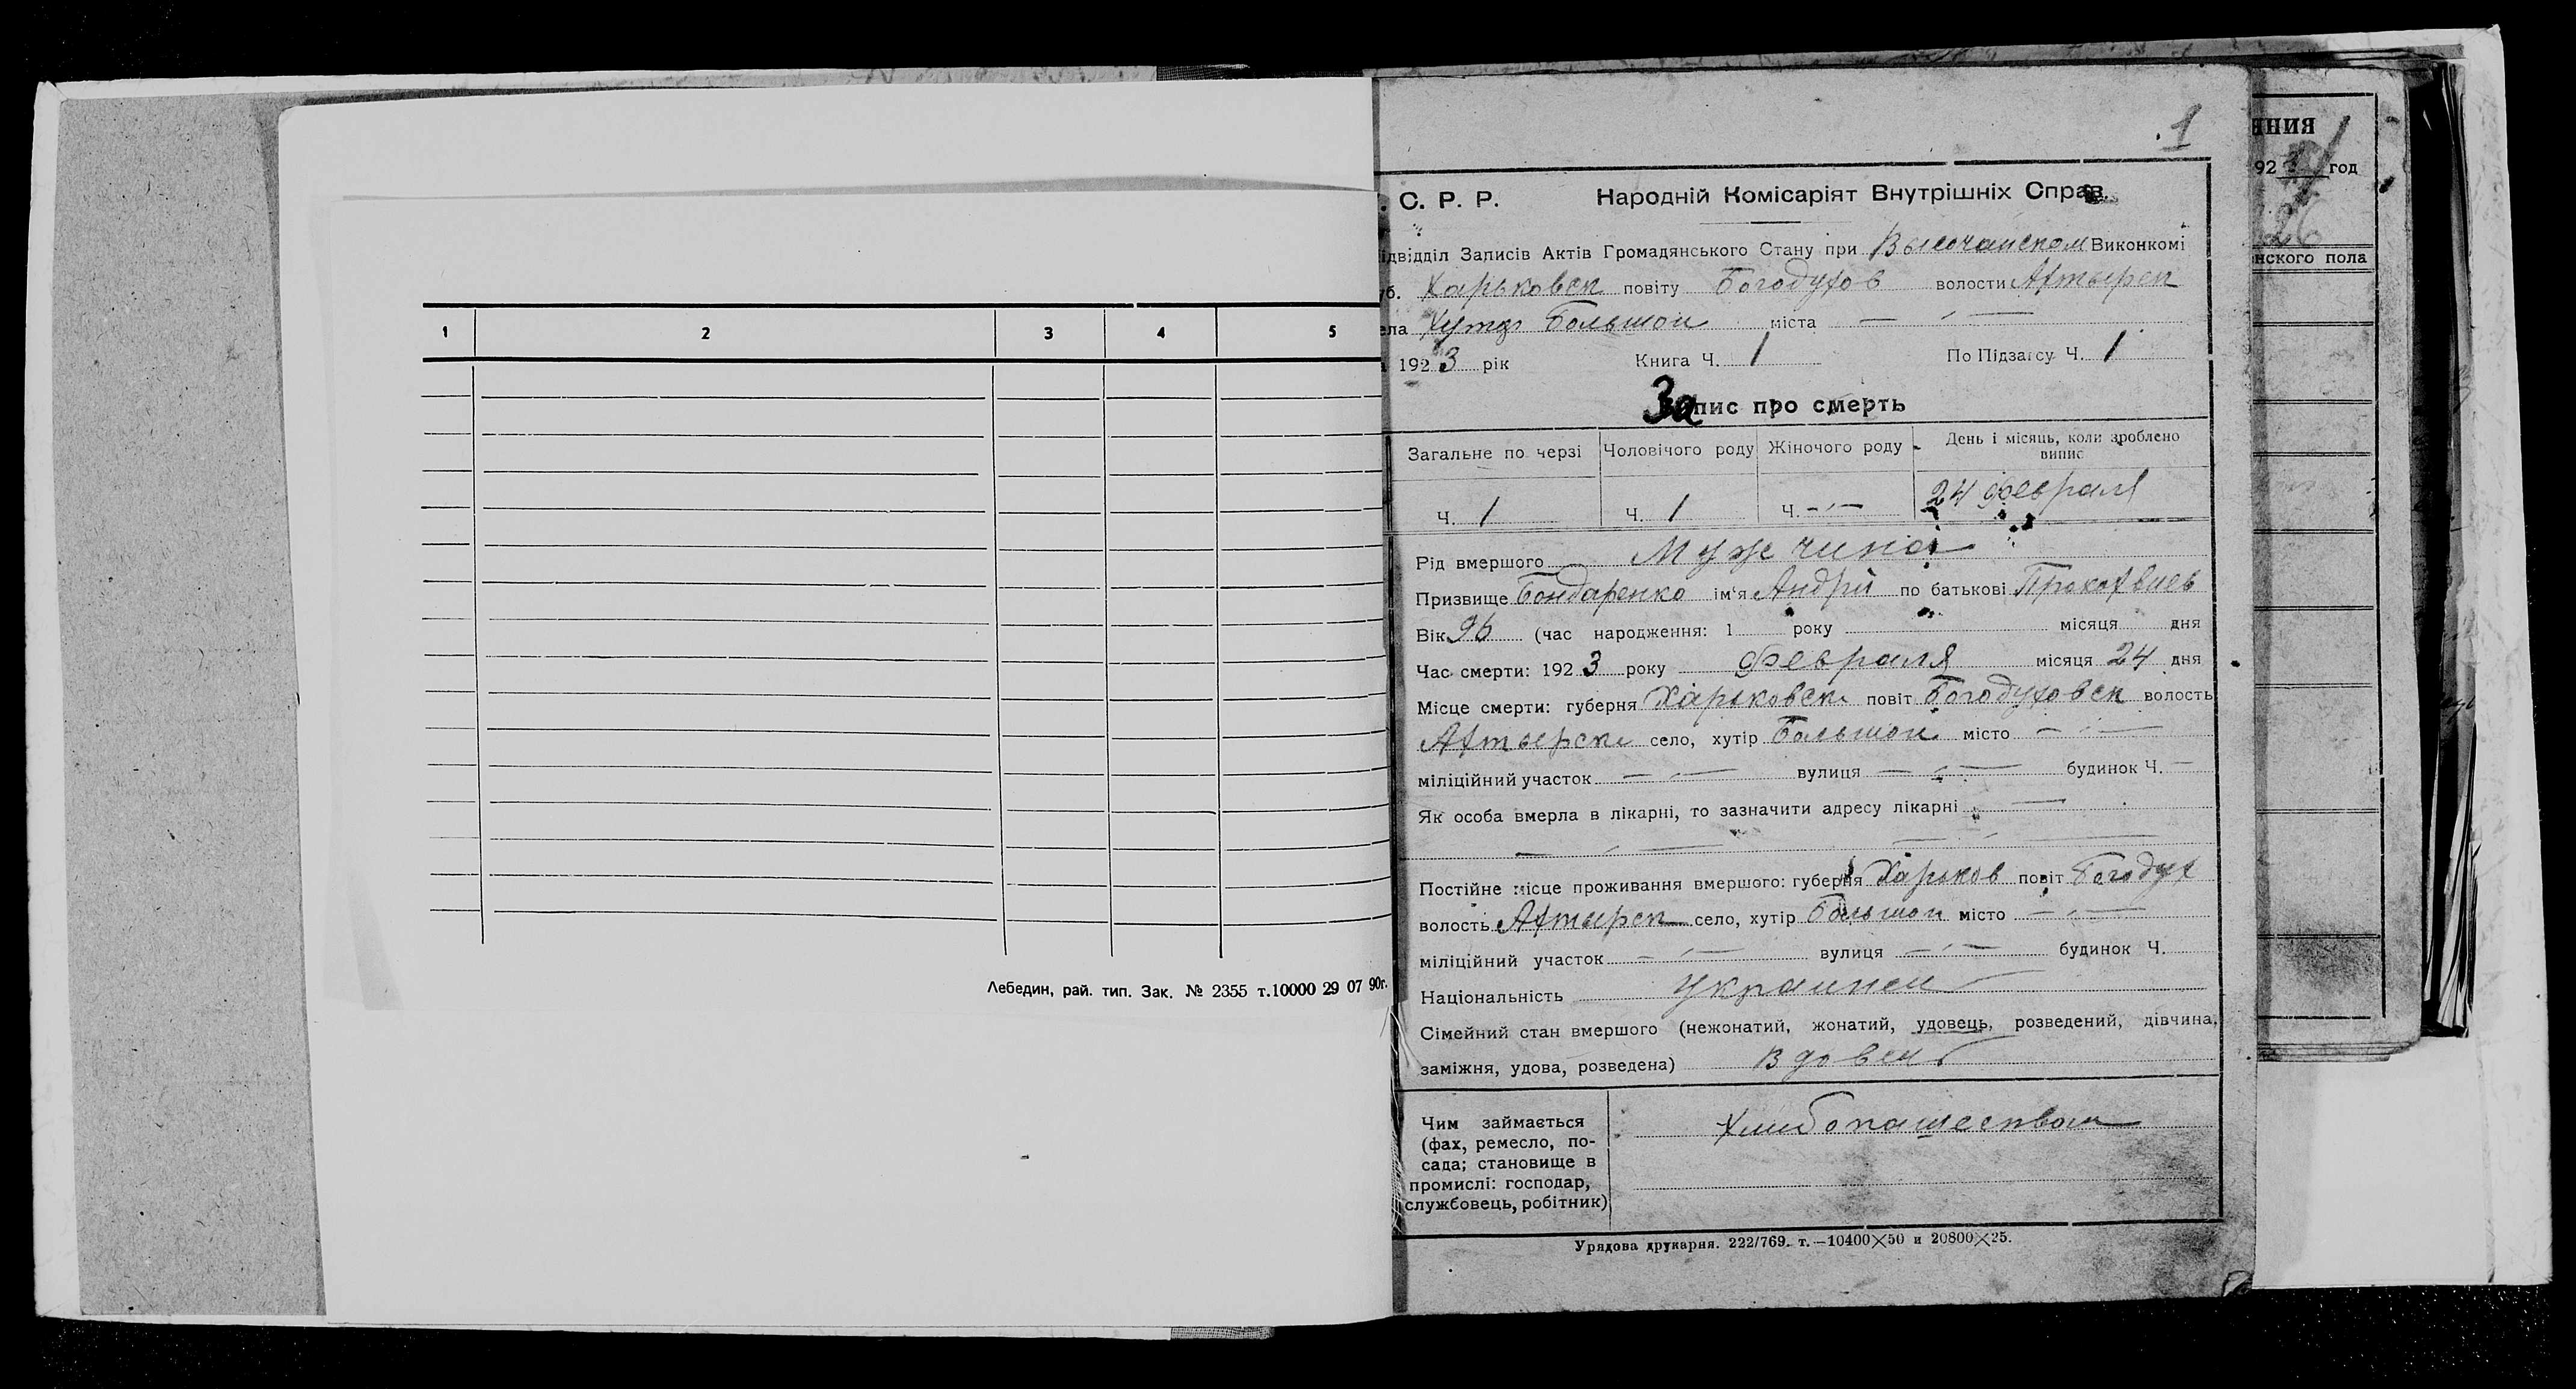 1 2 3 4 5
Лебедин, рай. тип. Зак. № 2355 т.10000 29 07 90г.
.1
С. Р. Р. Народній Комісаріят Внутрішніх Справ.
ідвідділ Записів Актів Громадянського Стану при Височанском Виконкомі
уб. Харьковск повіту Богодухов волости Ахтырск
ела Хутор Большой міста — —
192 3 рік Книга Ч. 1 По Підзагсу Ч. 1
Запис про смерть
Загальне по черзі Чоловічого роду Жіночого роду День і місяць, коли зроблено
випис
Ч. 1 Ч. 1 Ч. — — 24 февраля
Рід вмершого Мужчина
Призвище Бондаренко ім'я Андрій по батькові
Вік 96 (час народження: 1 року місяця дня
Час смерти: 192 3 року февраля місяця 24 дня
Місце смерти: губерня Харьковск повіт Богодуховск волость
Ахтырск село, хутір Большой місто — —
міліційний участок — — вулиця — — будинок Ч. —
Як особа вмерла в лікарні, то зазначити адресу лікарні —
Постійне місце проживання вмершого: губерня Харьков повіт Богодух
волость Ахтырск село, хутір Большой місто — —
міліційний участок — — вулиця — — будинок Ч.
Національність Украинец
Сімейний стан вмершого (нежонатий, жонатий, удовець, розведений, дівчина,
заміжня, удова, розведена) Вдовец
Чим займається
(фах, ремесло, по-
сада; становище в
промислі: господар,
службовець, робітник)
Хлибопашеством
Урядова друкарня. 222/769. т.—10400×50 и 20800×25.
ния
92 год
26
нского пола